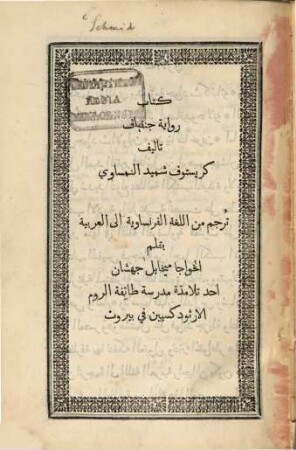 Schmid
كتاب
رواية جنفياف
تاليف
كريستوف شميد النمساوي
تُرجم من اللغة الفرنساوية الى العربية
بقلم
الخواجا ميخايل جهشان
احد تلامذة مدرسة طائفة الروم
الارثودكسيين في بيروت